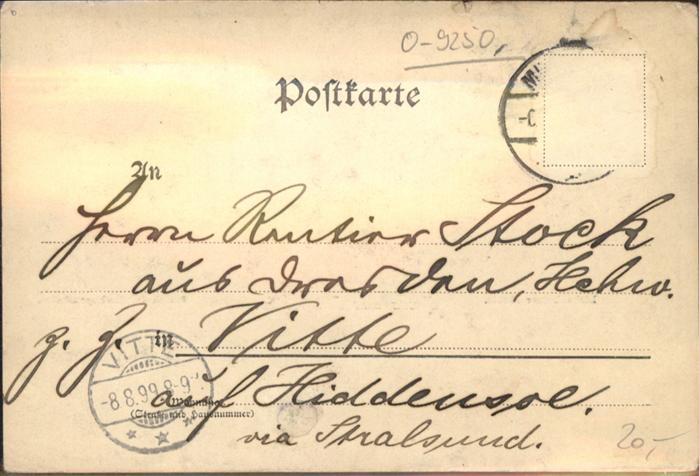 O-9250,
Postkarte
An
Herrn Rentier Stock
aus Dresden,
z. Z. in Vitte
VITTE
-8.8.99.8-9
auf Hiddensoe.
Wohnung
(Straße und Hausnummer)
via Stralsund.
20,-